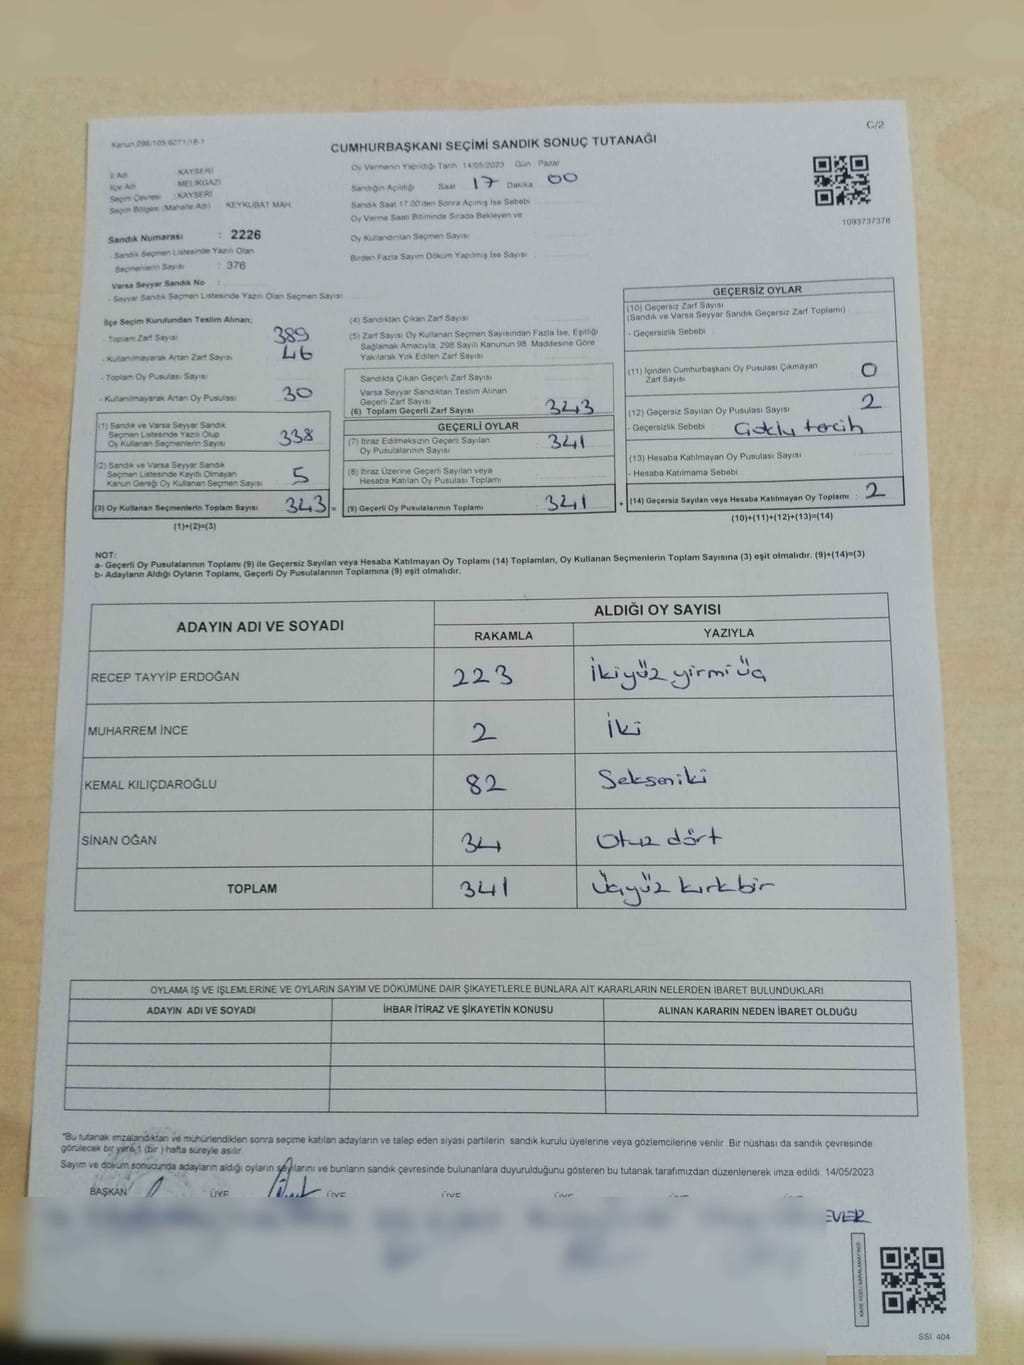 Kanun 298/105 6271/18-1
C/2
CUMHURBAŞKANI SEÇİMİ SANDIK SONUÇ TUTANAĞI
İl Adı : KAYSERİ
İlçe Adı : MELİKGAZİ
Seçim Çevresi : KAYSERİ
Seçim Bölgesi (Mahalle Adı) : KEYKUBAT MAH.
Oy Vermenin Yapıldığı Tarih 14/05/2023 Gün : Pazar
Sandığın Açıldığı Saat 17 Dakika 00
Sandık Saat 17.00'den Sonra Açılmış İse Sebebi
Oy Verme Saati Bitiminde Sırada Bekleyen ve
Oy Kullandırılan Seçmen Sayısı
Birden Fazla Sayım Döküm Yapılmış İse Sayısı
1093737378
Sandık Numarası : 2226
Sandık Seçmen Listesinde Yazılı Olan
Seçmenlerin Sayısı : 376
Varsa Seyyar Sandık No :
- Seyyar Sandık Seçmen Listesinde Yazılı Olan Seçmen Sayısı
İlçe Seçim Kurulundan Teslim Alınan;
- Toplam Zarf Sayısı 389
- Kullanılmayarak Artan Zarf Sayısı 46
- Toplam Oy Pusulası Sayısı
- Kullanılmayarak Artan Oy Pusulası 30
(1) Sandık ve Varsa Seyyar Sandık
Seçmen Listesinde Yazılı Olup
Oy Kullanan Seçmenlerin Sayısı 338
(2) Sandık ve Varsa Seyyar Sandık
Seçmen Listesinde Kayıtlı Olmayan
Kanun Gereği Oy Kullanan Seçmen Sayısı 5
(3) Oy Kullanan Seçmenlerin Toplam Sayısı 343 =
(1)+(2)=(3)
(4) Sandıktan Çıkan Zarf Sayısı
(5) Zarf Sayısı Oy Kullanan Seçmen Sayısından Fazla İse, Eşitliği
Sağlamak Amacıyla 298 Sayılı Kanunun 98. Maddesine Göre
Yakılarak Yok Edilen Zarf Sayısı
Sandıkta Çıkan Geçerli Zarf Sayısı
Varsa Seyyar Sandıktan Teslim Alınan
Geçerli Zarf Sayısı
(6) Toplam Geçerli Zarf Sayısı 343
GEÇERLİ OYLAR
(7) İtiraz Edilmeksizin Geçerli Sayılan
Oy Pusulalarının Sayısı 341
(8) İtiraz Üzerine Geçerli Sayılan veya
Hesaba Katılan Oy Pusulası Toplamı
(9) Geçerli Oy Pusulalarının Toplamı 341 +
GEÇERSİZ OYLAR
(10) Geçersiz Zarf Sayısı
(Sandık ve Varsa Seyyar Sandık Geçersiz Zarf Toplamı)
- Geçersizlik Sebebi :
(11) İçinden Cumhurbaşkanı Oy Pusulası Çıkmayan
Zarf Sayısı 0
(12) Geçersiz Sayılan Oy Pusulası Sayısı 2
- Geçersizlik Sebebi : Çoklu tercih
(13) Hesaba Katılmayan Oy Pusulası Sayısı
- Hesaba Katılmama Sebebi
(14) Geçersiz Sayılan veya Hesaba Katılmayan Oy Toplamı : 2
(10)+(11)+(12)+(13)=(14)
NOT:
a- Geçerli Oy Pusulalarının Toplamı (9) ile Geçersiz Sayılan veya Hesaba Katılmayan Oy Toplamı (14) Toplamları, Oy Kullanan Seçmenlerin Toplam Sayısına (3) eşit olmalıdır. (9)+(14)=(3)
b- Adayların Aldığı Oyların Toplamı, Geçerli Oy Pusulalarının Toplamına (9) eşit olmalıdır.
ADAYIN ADI VE SOYADI
ALDIĞI OY SAYISI
RAKAMLA YAZIYLA
RECEP TAYYİP ERDOĞAN 223 İkiyüz yirmi üç
MUHARREM İNCE 2 İki
KEMAL KILIÇDAROĞLU 82 Seksen iki
SİNAN OĞAN 34 Otuz dört
TOPLAM 341 Üçyüz kırk bir
OYLAMA İŞ VE İŞLEMLERİNE VE OYLARIN SAYIM VE DÖKÜMÜNE DAİR ŞİKAYETLERLE BUNLARA AİT KARARLARIN NELERDEN İBARET BULUNDUKLARI
ADAYIN ADI VE SOYADI İHBAR İTİRAZ VE ŞİKAYETİN KONUSU ALINAN KARARIN NEDEN İBARET OLDUĞU
*Bu tutanak imzalandıktan ve mühürlendikten sonra seçime katılan adayların ve talep eden siyasi partilerin sandık kurulu üyelerine veya gözlemcilerine verilir. Bir nüshası da sandık çevresinde
görülecek bir yere 1 (bir) hafta süreyle asılır.
Sayım ve döküm sonucunda adayların aldığı oyların sayılarını ve bunların sandık çevresinde bulunanlara duyurulduğunu gösteren bu tutanak tarafımızdan düzenlenerek imza edildi. 14/05/2023
BAŞKAN ÜYE ÜYE ÜYE ÜYE ÜYE ÜYE
EVLER
SSI 404